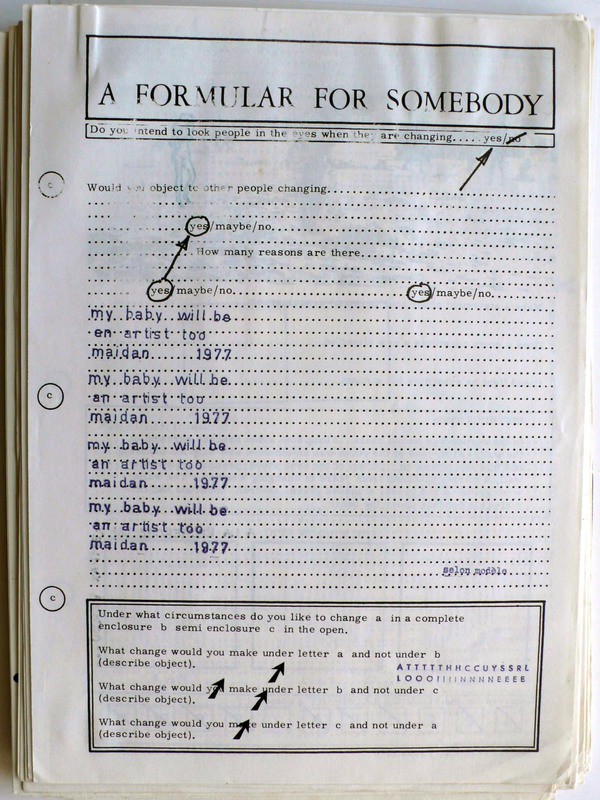 A FORMULAR FOR SOMEBODY
Do you intend to look people in the eyes when they are changing.....yes/no
c
Would you object to other people changing
yes/maybe/no
How many reasons are there
yes/maybe/no yes/maybe/no
my baby will be
an artist too
maidan 1977
c
my baby will be
an artist too
maidan 1977
my baby will be
an artist too
maidan 1977
my baby will be
an artist too
maidan 1977
selon modèle
c
Under what circumstances do you like to change a in a complete
enclosure b semi enclosure c in the open.
What change would you make under letter a and not under b
(describe object).
ATTTTTHHCCUYSSRL
LOOOIIIINNNNEEEE
What change would you make under letter b and not under c
(describe object).
What change would you make under letter c and not under a
(describe object).